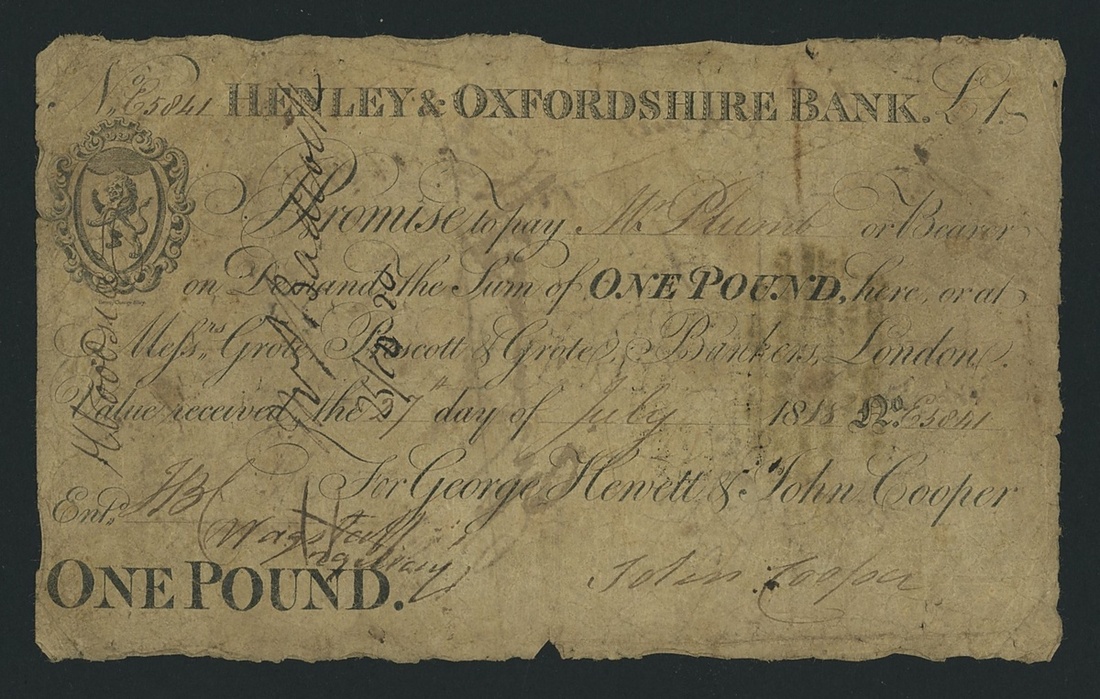 No. E5841 HENLEY & OXFORDSHIRE BANK. £1.
I Promise to pay Mr. Plumb or Bearer
on Demand the Sum of ONE POUND, here, or at
Messrs. Grote, Prescott & Grote, Bankers, London.
Value received the 27th day of July 1815 No. E5841
For George Hewett & John Cooper
Entd. HB
Wagstaff
John Cooper
ONE POUND.